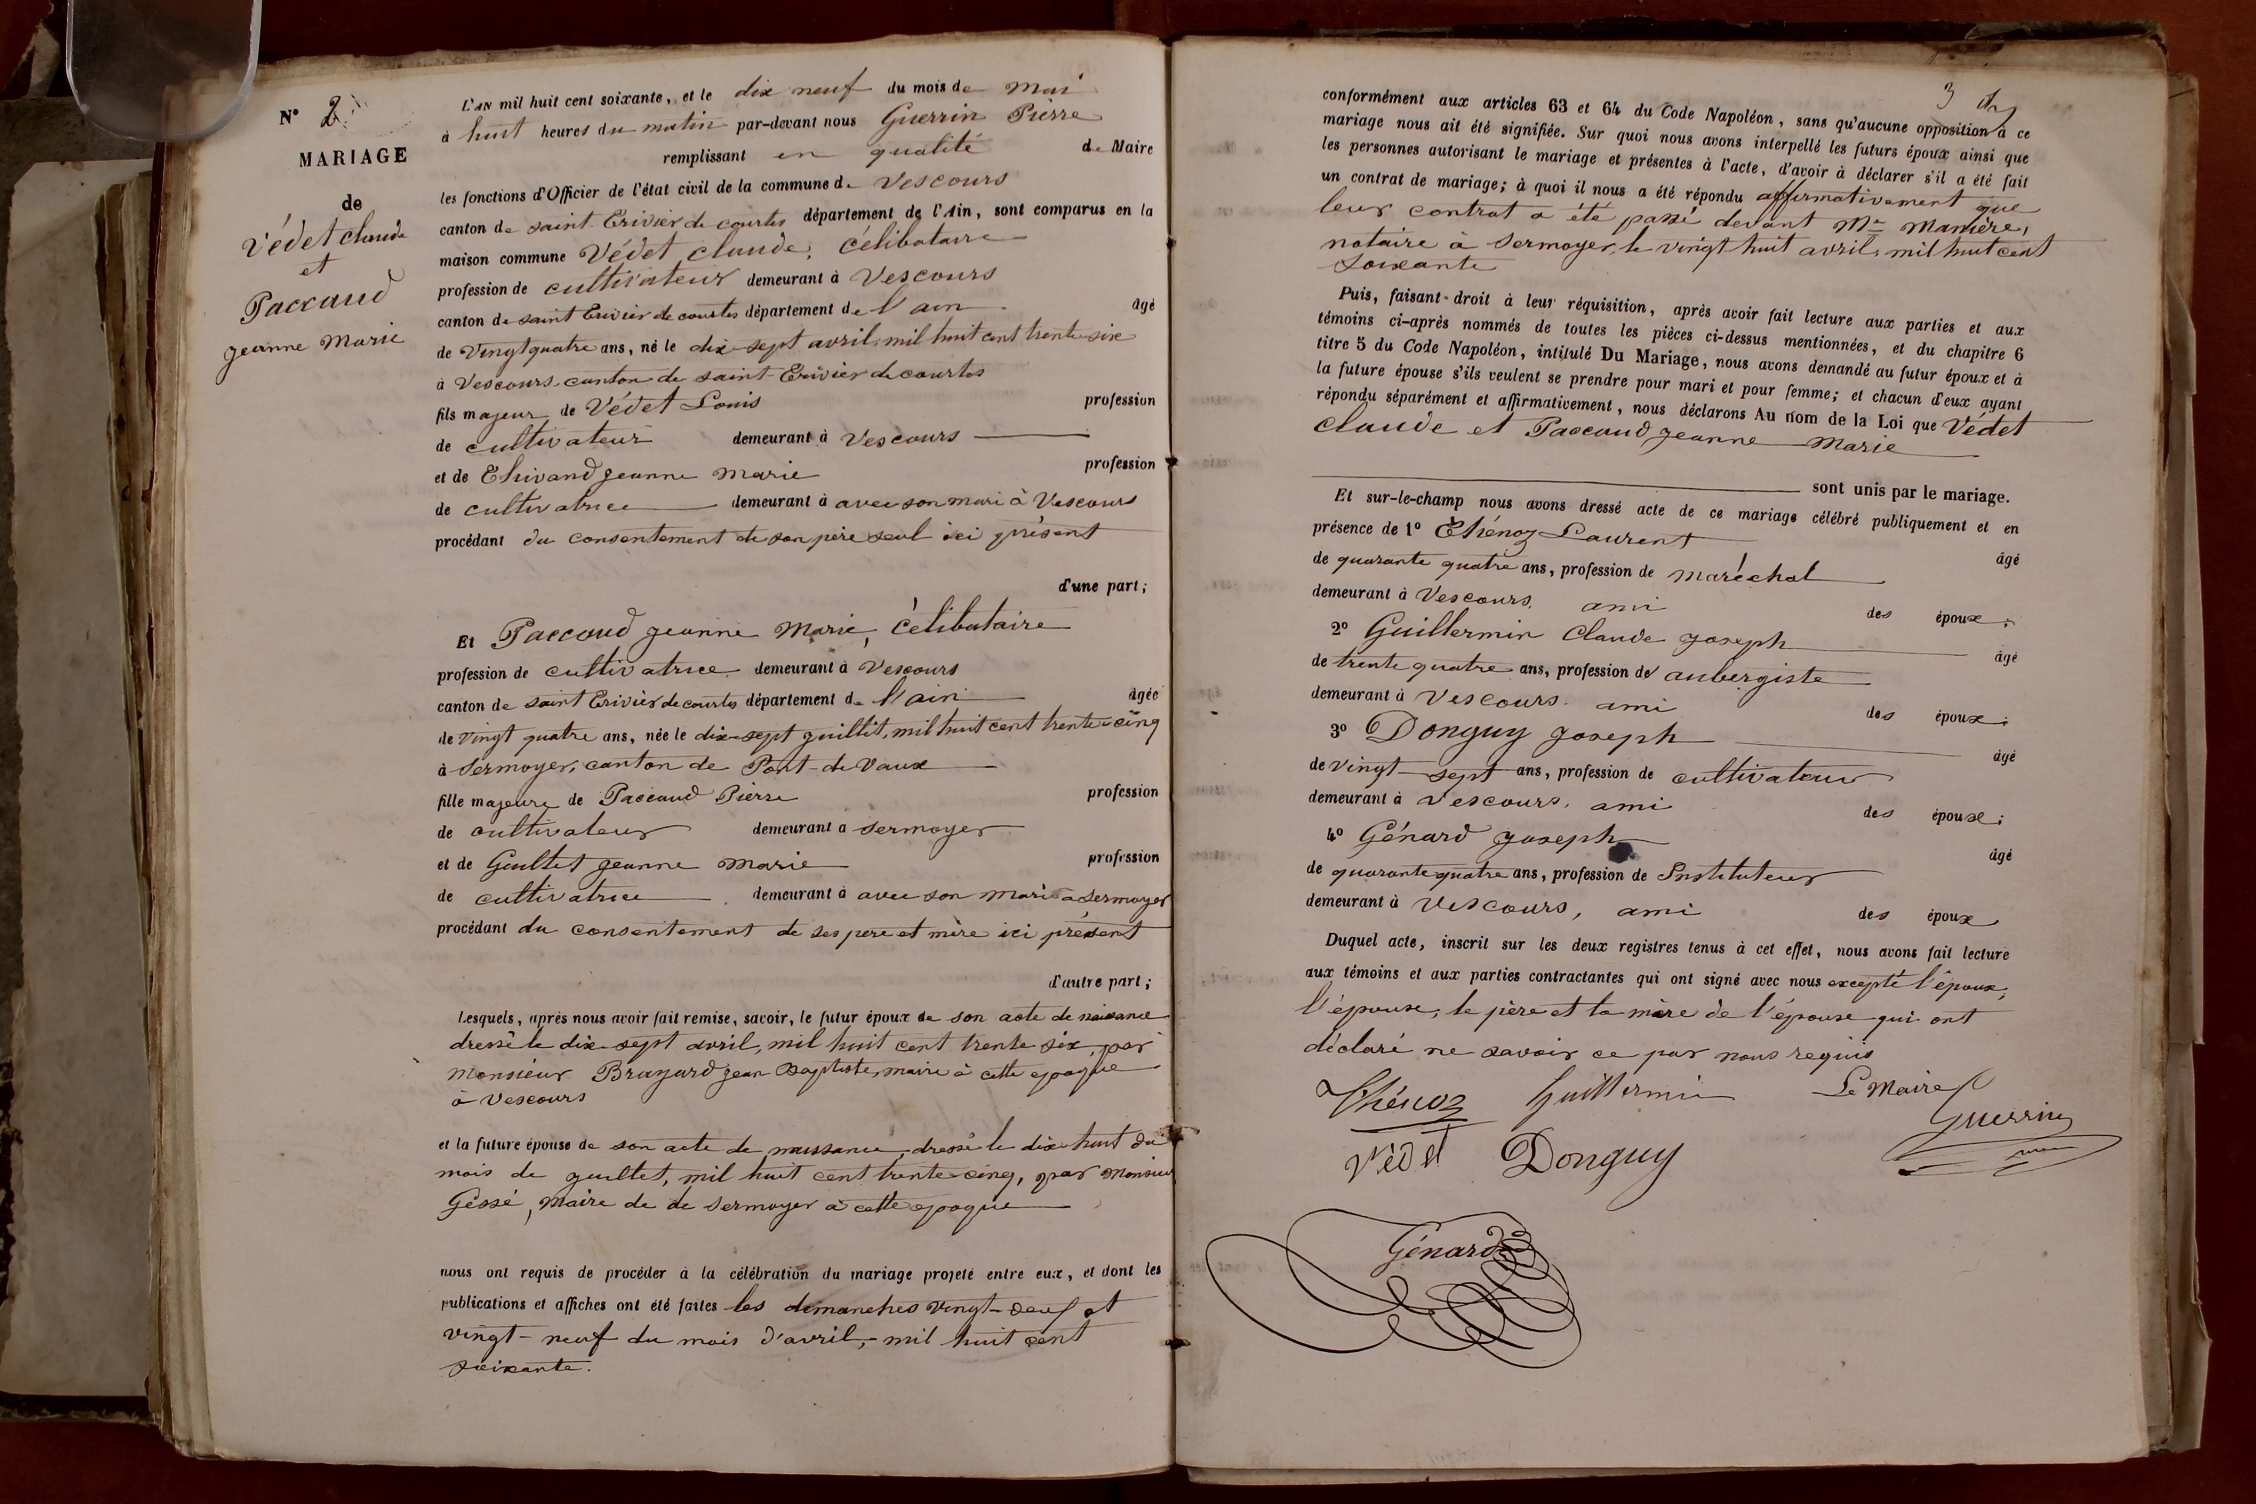 N° 2.
MARIAGE
de
Védet claude
et
Paccaud
jeanne Marie
L'AN mil huit cent soixante, et le dix neuf du mois de Mai
à huit heures du matin par-devant nous Guerrin Pierre
remplissant en qualité de Maire
les fonctions d'Officier de l'état civil de la commune de Vescours
canton de saint Trivier de courtes département de l'Ain, sont comparus en la
maison commune Védet claude, célibataire
profession de cultivateur demeurant à Vescours
canton de saint Trivier de courtes département de l'ain âgé
de vingt quatre ans, né le dix-sept avril, mil huit cent trente-six
à Vescours canton de saint Trivier de courtes
fils majeur de Védet Louis profession
de cultivateur demeurant à Vescours
et de Thivand jeanne marie profession
de cultivatrice demeurant à avec son mari à Vescours
procédant du consentement de son père seul ici présent
d'une part;
Et Paccoud jeanne Marie, célibataire
profession de cultivatrice demeurant à Vescours
canton de saint Trivier de courtes département de l'ain âgée
de vingt quatre ans, née le dix-sept juillit, mil huit cent trente-cinq
à Sermoyer, canton de Pont-de-Vaux
fille majeure de Paccaud Pierre profession
de cultivateur demeurant à sermoyer
et de Goultet jeanne Marie profession
de cultivatrice demeurant à avec son mari à sermoyer
procédant du consentement de ses pere et mère ici présent
d'autre part;
Lesquels, après nous avoir fait remise, savoir, le futur époux de son acte de naissance
dressé le dix-sept avril, mil huit cent trente six, par
Monsieur Brayard jean Baptiste, maire à cette epoque
à Vescours
et la future épouse de son acte de naissance dressé le dix-huit du
mois de juillet, mil huit cent trente-cinq, par Monsieur
Gessé, Maire de de sermoyer à cette epoque
nous ont requis de procéder à la célébration du mariage projeté entre eux, et dont les
publications et affiches ont été faites les dimanches vingt-deux et
vingt-neuf du mois d'avril, mil huit cent
soixante.
3
conformément aux articles 63 et 64 du Code Napoléon, sans qu'aucune opposition à ce
mariage nous ait été signifiée. Sur quoi nous avons interpellé les futurs époux ainsi que
les personnes autorisant le mariage et présentes à l'acte, d'avoir à déclarer s'il a été fait
un contrat de mariage; à quoi il nous a été répondu affirmativement que
leur contrat a été passé devant Me Manière,
notaire à Sermoyer, le vingt huit avril, mil huit cent
soixante
Puis, faisant droit à leur réquisition, après avoir fait lecture aux parties et aux
témoins ci-après nommés de toutes les pièces ci-dessus mentionnées, et du chapitre 6
titre 5 du Code Napoléon, intitulé Du Mariage, nous avons demandé au futur époux et à
la future épouse s'ils veulent se prendre pour mari et pour femme; et chacun d'eux ayant
répondu séparément et affirmativement, nous déclarons Au nom de la Loi que Védet
claude et Paccaud jeanne Marie
sont unis par le mariage.
Et sur-le-champ nous avons dressé acte de ce mariage célébré publiquement et en
présence de 1° Thénoz Laurent
âgé
de quarante quatre ans, profession de maréchal
demeurant à Vescours, ami des époux;
2° Guillermin Claude joseph
âgé
de trente quatre ans, profession de aubergiste
demeurant à Vescours. ami des époux;
3° Donguy joseph
âgé
de vingt-sept ans, profession de cultivateur
demeurant à Vescours, ami des époux;
4° Génard joseph
âgé
de quarante quatre ans, profession de Instituteur
demeurant à Vescours, ami des époux
Duquel acte, inscrit sur les deux registres tenus à cet effet, nous avons fait lecture
aux témoins et aux parties contractantes qui ont signé avec nous excepté l'époux,
l'épouse, le père et la mère de l'épouse qui ont
déclaré ne savoir ce par nous requis
Thénoz Guillermin Le Maire
Guerrin
Védet Donguy
Génard